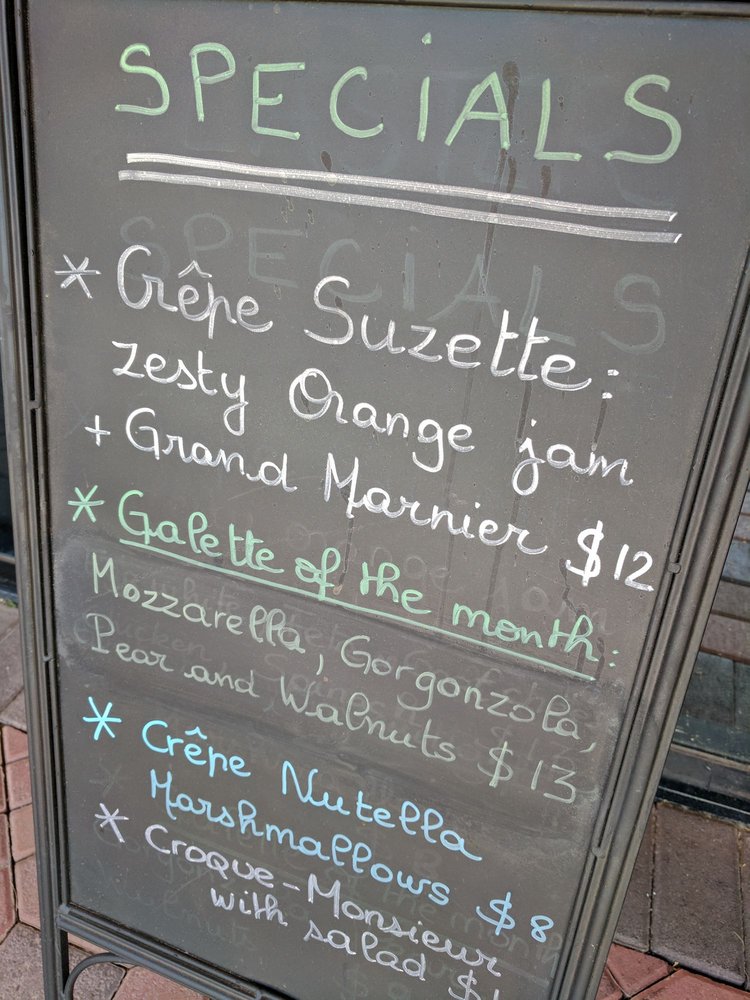 SPECIALS
* Crêpe Suzette:
zesty Orange jam
+ Grand Marnier $12
* Galette of the month:
Mozzarella, Gorgonzola,
Pear and Walnuts $13
* Crêpe Nutella
Marshmallows $8
* Croque-Monsieur
with salad $1